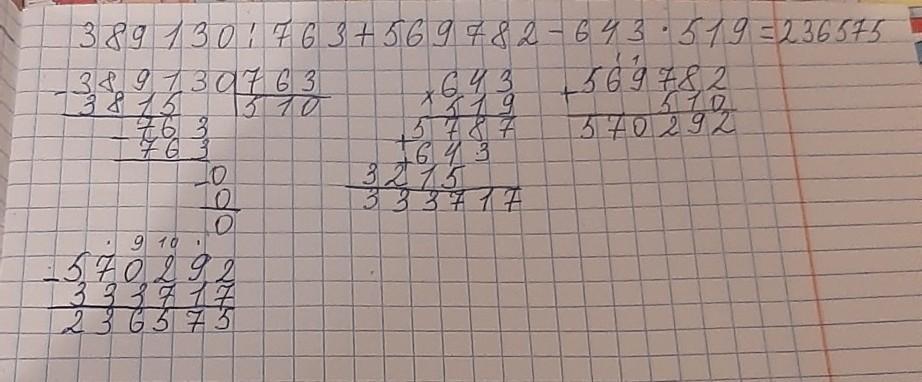 389130:763+569782-643·519=236575
-389130|763
3815 510
-763
763
-0
0
0
×643
519
+5787
+643
3215
333717
1 1
+569782
510
570292
· 9 10 ·
-570292
333717
236575